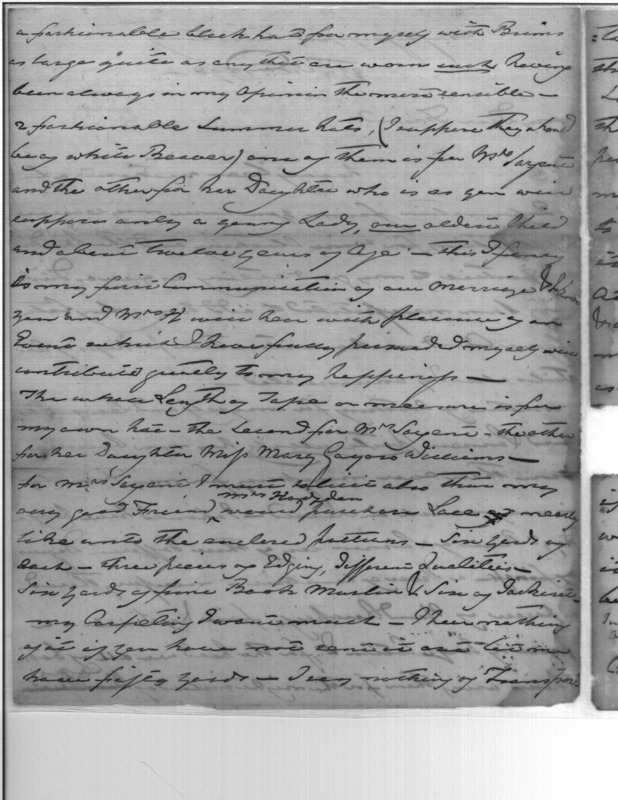 a fashionable black hat for myself with Brims
as large quite as any that are worn such having
been always in my opinion the most sensible —
2 fashionable Summer hats, (I suppose they should
be of white Beaver) one of them is for Mrs Sargent
and the other for her Daughter who is as you will
suppose only a young Lady, our oldest Child
and about twelve years of Age — this I fancy
is my first Communication of our Marriage &
you and Mrs H will hear with pleasure of an
Event which I have fully persuaded myself will
contribute greatly to my happiness —
The whole Length of Tape or measure is for
my own hat — the Second for Mrs Sargent — the other
for her Daughter Miss Mary Gayoso Williams —
for Mrs Sargent I must solicit also that my
very good Friend Mrs Hodgdon would purchase Lace nearly
like unto the enclosed patterns — Six yards of
each — three pieces of Edging, different qualities —
Six yards of fine Book Muslin & Six of Jackonet —
my Carpeting I want much — I hear nothing
of it if you have not sent it out let me
have fifty yards — I say nothing of